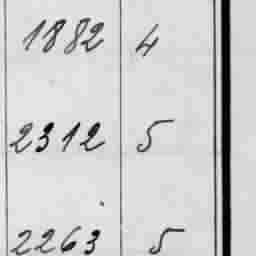 1882 4
2312 5
2263 5